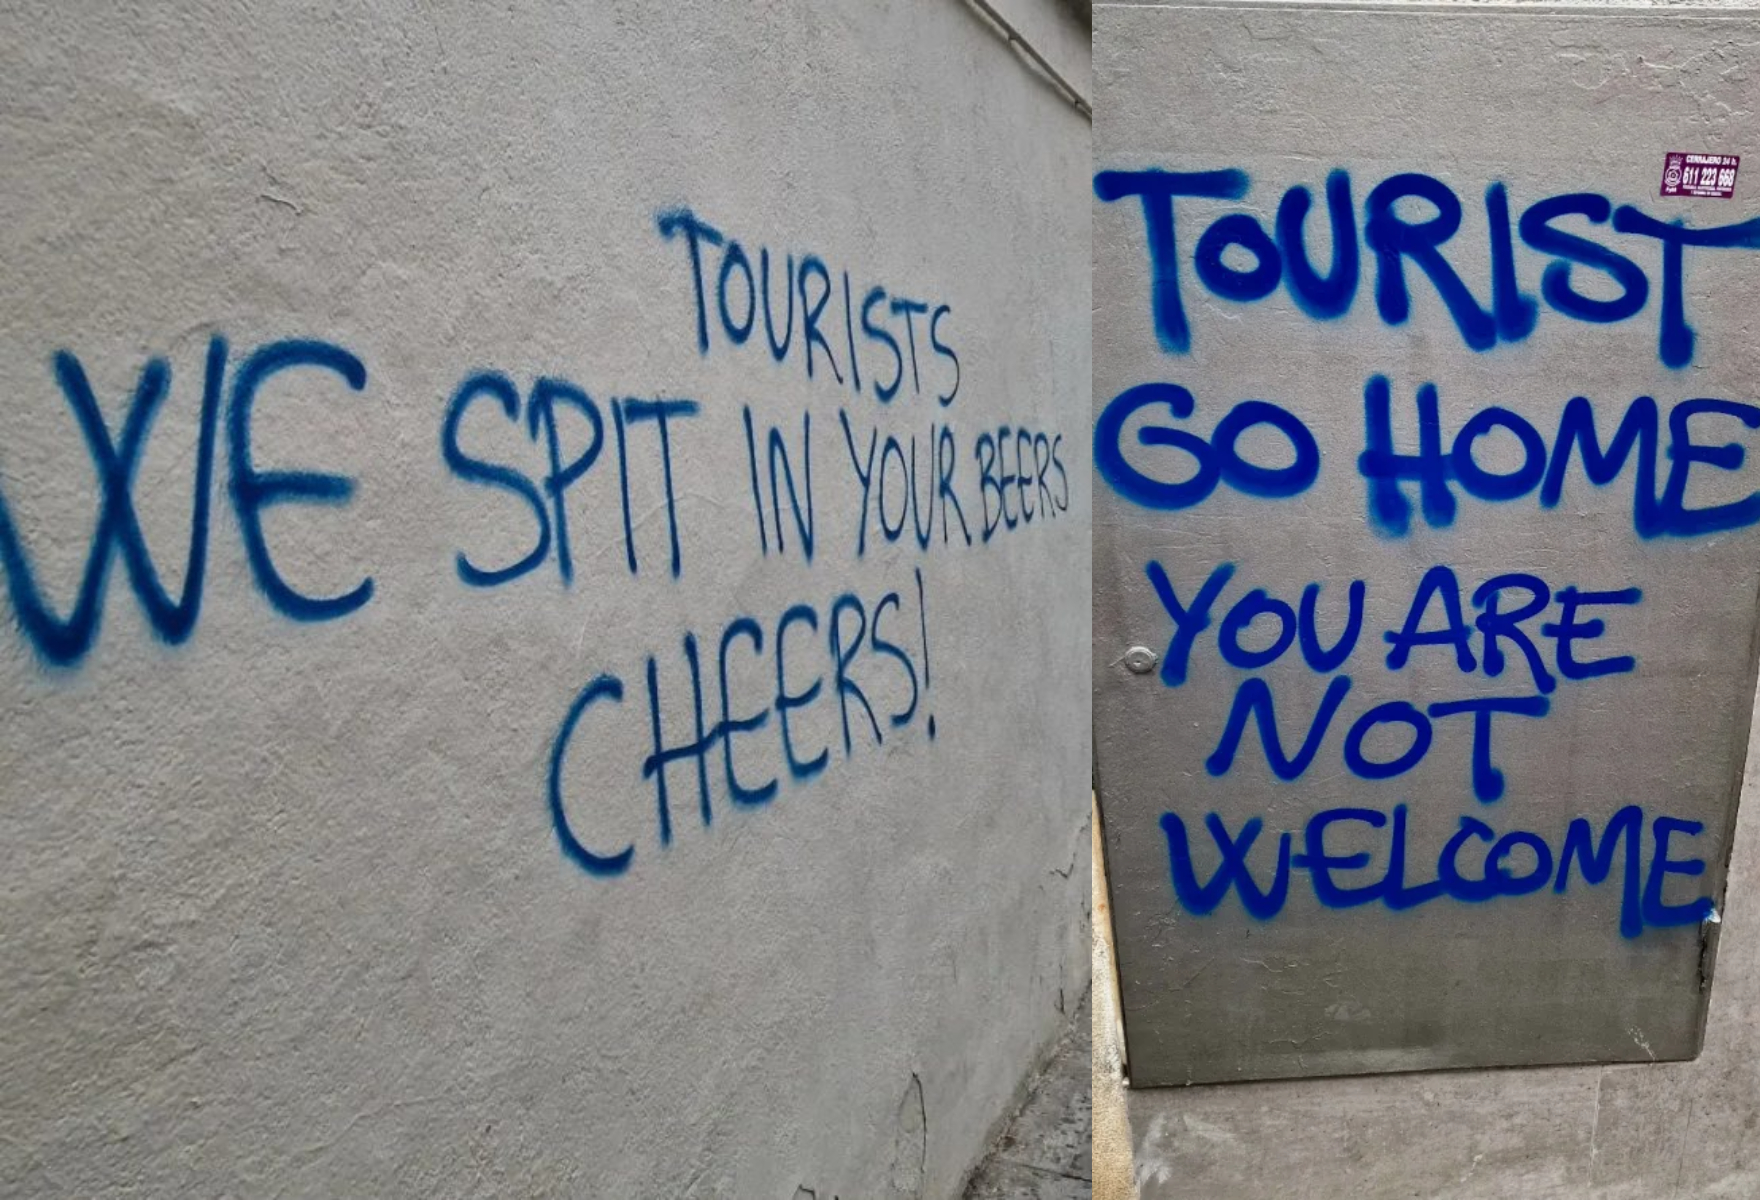 TOURISTS
WE SPIT IN YOUR BEERS
CHEERS!
CERRAJERO 24 h.
611 223 668
TOURIST
GO HOME
YOU ARE
NOT
WELCOME